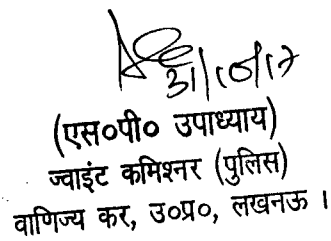 31/10/17
(एस०पी० उपाध्याय)
ज्वाइंट कमिश्नर (पुलिस)
वाणिज्य कर, उ०प्र०, लखनऊ ।